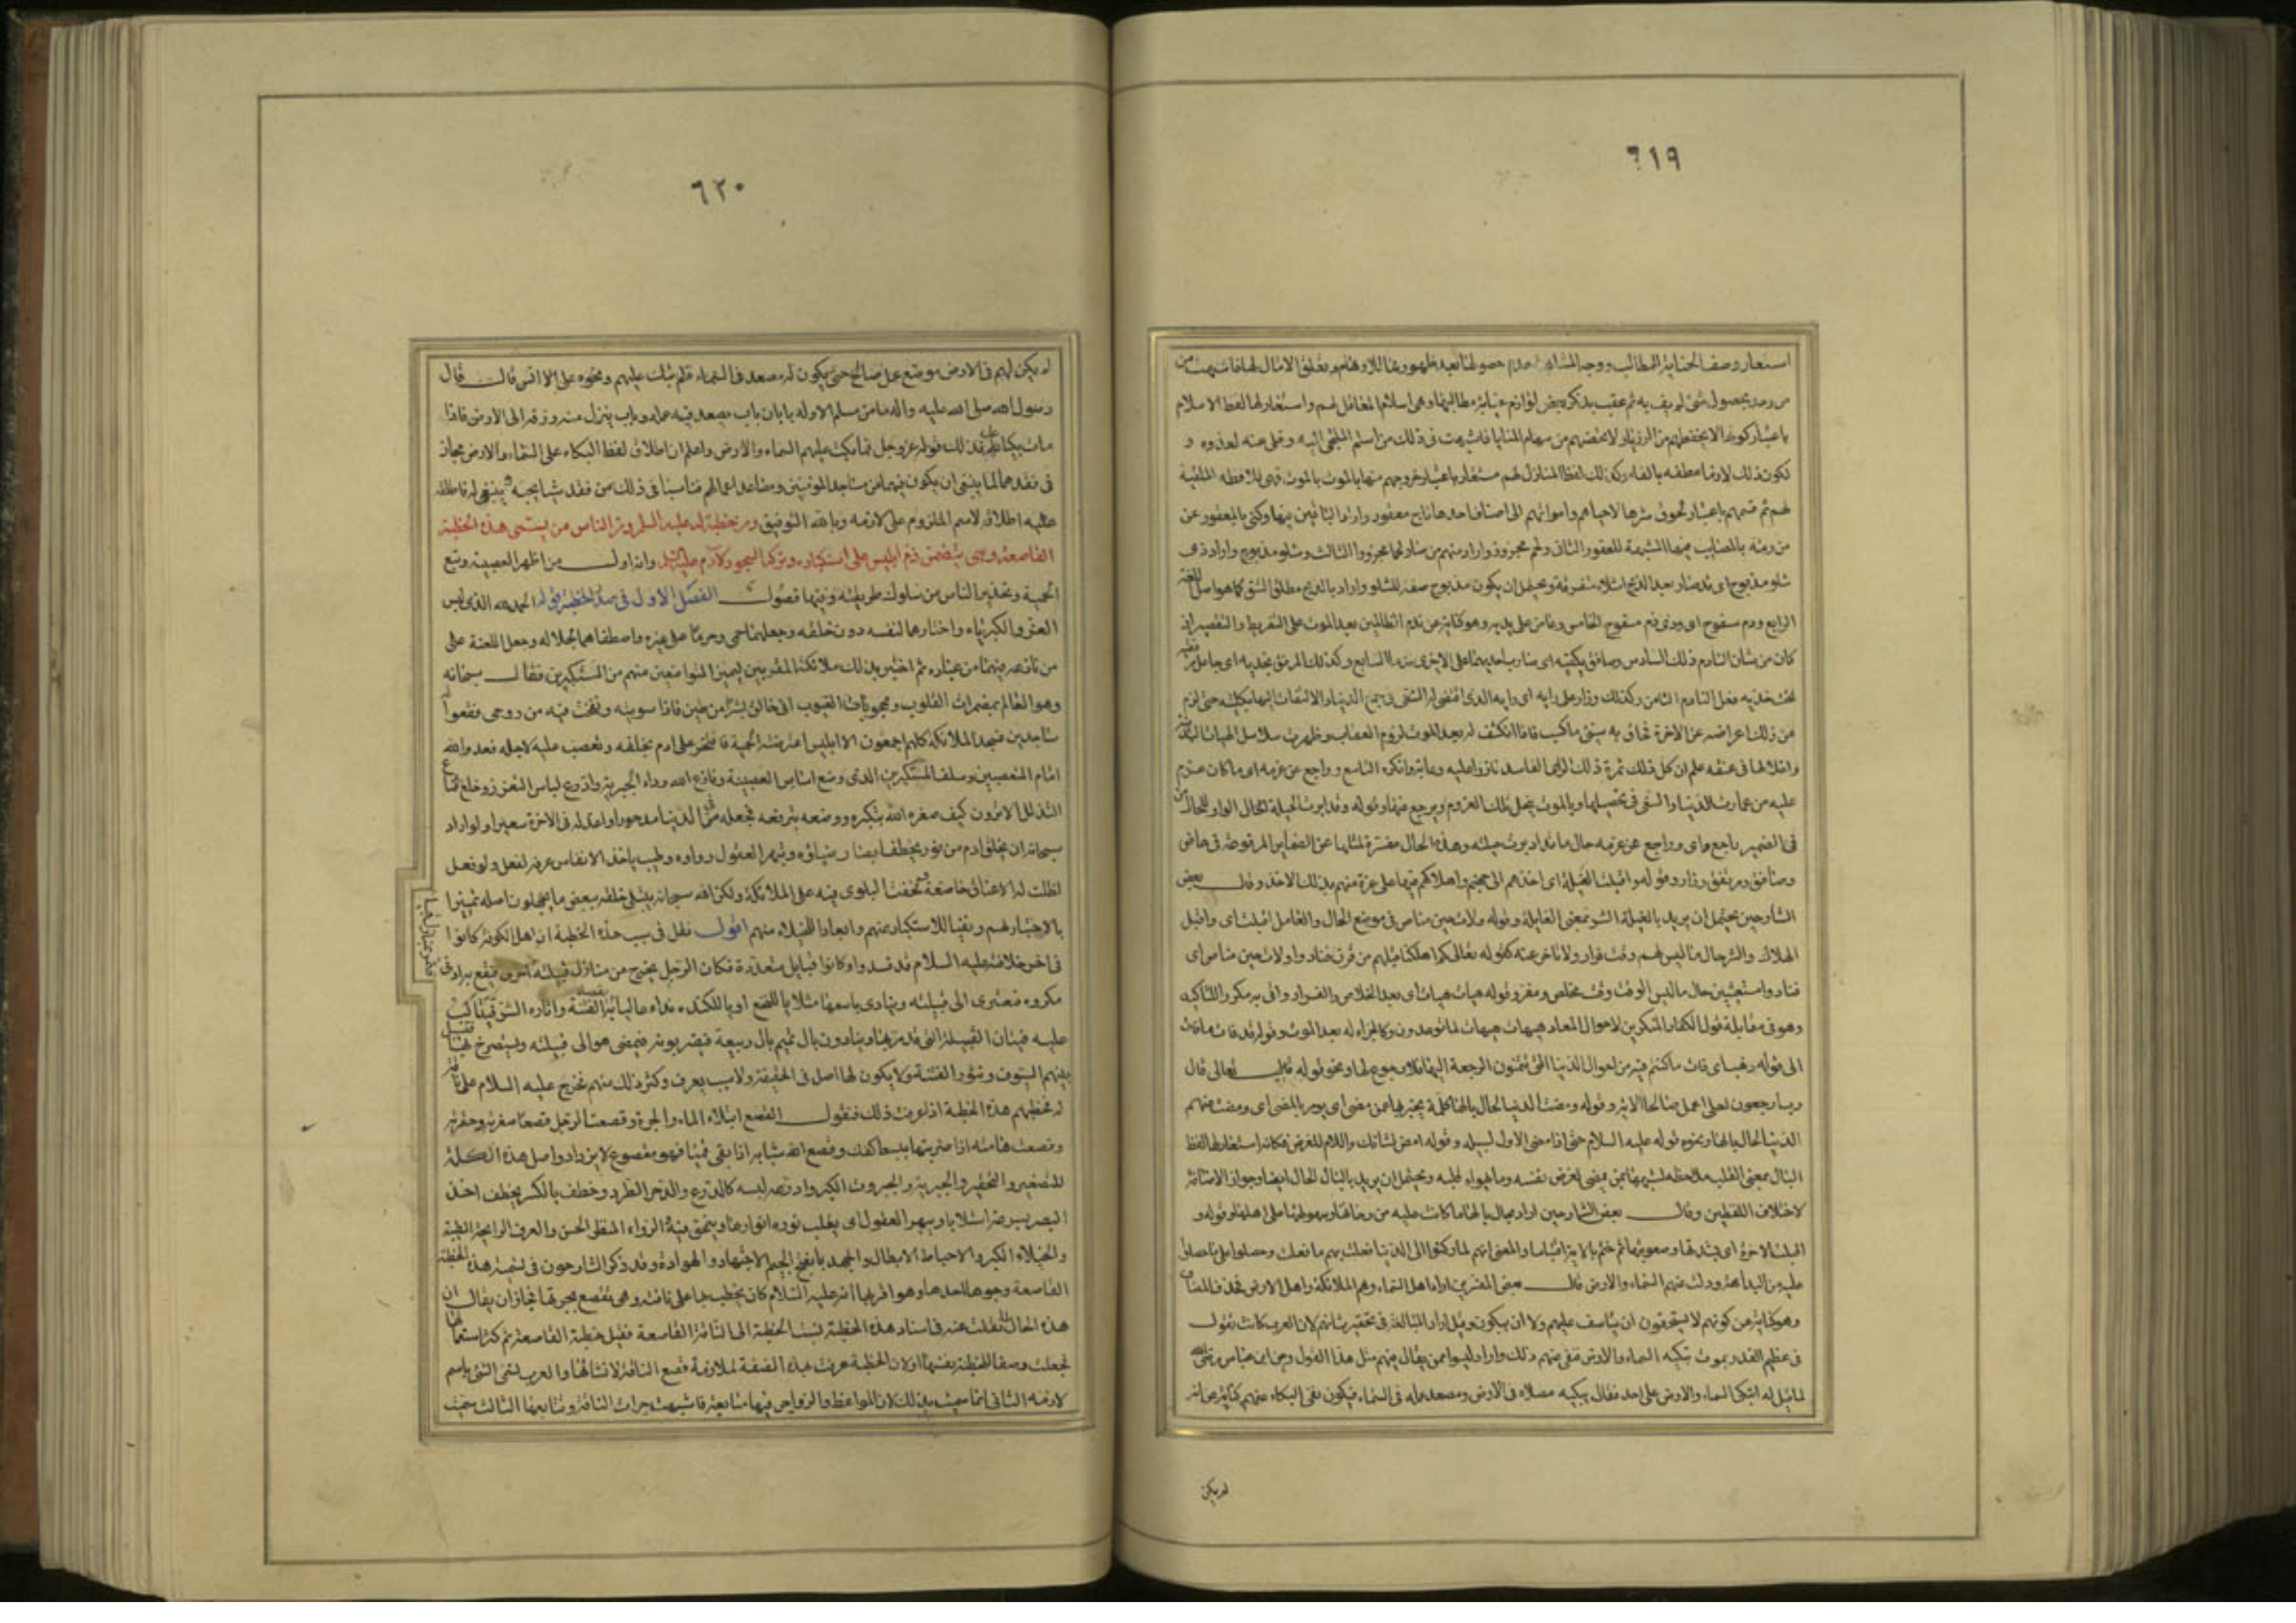 ٦١٩
استعار وصف الخيانة للمطالب ووجه المشابهة عدم حصولها بعد ظهورها للاوهام وتعلق الامال لها فاشبهت من
من وعد بحصول شئ لم يف به ثم عقب بذكر بعض لوازم مطالبها وهى اسلام المعاقل لهم واستعار لها لفظ الاسلام
باعتبار كونها لا تحفظهم من الرزايا ولا تحصنهم من سهام المنايا فاشبهت فى ذلك من اسلم الملتجئ اليه وخلى عنه لعدوه و
لكون ذلك لازما عطفه بالفاء وكذلك لفظ المنازل لهم مستعار باعتبار خروجهم منها بالموت فهى كاللافظة الملقية
لهم ثم قسمهم باعتبار لحوق شرها لاحياهم وامواتهم الى اصناف احدها ناج معقور واراد الباقين فيها وكنى بالمعقور عن
من رمته بالمصايب منها المشبهة للعقور الثانى ولحم مجزور واراد الثالث وشلو مذبوح واراد ذى
شلو مذبوح اى قد صار بعد الذبح اشلاء متفرقة ويحتمل ان يكون مذبوح صفة للشلو واراد بالذبح مطلق الشق كما هو اصل اللغة
الرابع ودم مسفوح اى وذى دم مسفوح الخامس وعاض على يديه وهو كناية عن ندم الظالمين بعد الموت على التفريط والتقصير اذ
كان من شان النادم ذلك السادس وصافق بكفيه اى ضارب احديهما على الاخرى ندما السابع وكذلك المرتفق بخديه اى جاعل مرفقيه
تحت خديه فعل النادم الثامن وكذلك وزار على رايه اى رايه الذى اقتضى له السعى فى جمع الدنيا والالتفات اليها بكليته حتى لزم
من ذلك اعراضه عن الاخرة فحاق به سيئ ما كسب فاذا انكشف له بعد الموت لزوم العقاب وظهرت سلاسل الهيات البدنية
واغلالها فى عنقه علم ان كل ذلك ثمرة ذلك الراى الفاسد فازرا عليه وعابه وانكره التاسع وراجع عن عزمه اى ما كان عزم
عليه من عمارة الدنيا والسعى فى تحصيلها وبالموت ينحل تلك العزوم ويرجع عنها وقوله وقد ادبرت الحيلة الحال الواو للحال من
فى الضمير راجع اى وراجع عن عزمه حال ما قد ادبرت حيلته وهذه الحال مفسرة لمثلها عن الضماير المرفوعة فى عاض
وصافق ومرتفق وزار وقوله واقبلت الغيلة اى اخذهم الى جهنم واهلاكهم فيها على غرة منهم بذلك الاخذ وقال بعض
الشارحين يحتمل ان يريد بالغيلة الشر بمعنى الغايلة وقوله ولات حين مناص فى موضع الحال والعامل اقبلت اى واقبل
الهلاك والشر حال ما ليس لهم وقت فرار ولا تاخر عنه كقوله تعالى كم اهلكنا قبلهم من قرن فنادوا ولات حين مناص اى
فنادوا مستغيثين حال ما ليس الوقت وقت مخلص ومفر وقوله هيهات هيهات اى بعد الخلاص والفرار واتى به مكررا للتاكيد
وهو فى مقابلة قول الكفار المنكرين لاحوال المعاد هيهات هيهات لما توعدون وكالجزاء له بعد الموت وقوله قد فات ما فات
الى قوله ذهب اى فات ما كنتم فيه من احوال الدنيا التى تتمنون الرجعة اليها فلا رجوع لها ونحو قوله تعالى قال
رب ارجعون لعلى اعمل صالحا الاية وقوله ومضت الدنيا لحال بالها كلمة يخبر بها عمن مضى اى بوبر بالمضى اى ومضت عنهم
الدنيا لحال بالها ونحوه قوله عليه السلام حتى اذا مضى الاول لسبيله وقوله امض لشانك واللام للغرض فكانه استعار لها لفظ
البال بمعنى القلب ملاحظة لشبهها بمن يمضى لغرض نفسه وما يهواه قلبه ويحتمل ان يريد بالبال الحال ايضا وجواز الاضافة
لاختلاف اللفظين وقال بعض الشارحين اراد بحال بالها ما كانت عليه من رخائها وسهولتها على اهلها وقوله و
اقبلت الاخرة اى بشدتها وصعوبتها ثم ختم بالاية اقتباسا والمعنى انهم لما ركنوا الى الدنيا فعلت بهم ما فعلت وحصلوا على ما حصلوا
عليه من الندامة ودلت عنهم السماء والارض قال بعض المفسرين اراد اهل السماء وهم الملائكة واهل الارض فحذف المضاف
وهو كناية عن كونهم لا يستحقون ان يتاسف عليهم ولا ان يبكون وقيل اراد المبالغة فى تحقير شانهم لان العرب كانت تقول
فى عظيم القدر يموت تبكيه السماء والارض فنفى عنهم ذلك واراد ليسوا ممن يقال فيهم مثل هذا القول وعن ابن عباس رضى الله
لما قيل له اتبكى السماء والارض على احد فقال يبكيه مصلاه فى الارض ومصعد عمله فى السماء فيكون نفى البكاء عنهم كناية عن انه
لم يكن
٦٢٠
لم يكن لهم فى الارض موضع عمل صالح حتى يكون له مصعد فى السماء فلم تبك عليهم ونحوه عن انس قال قال
رسول الله صلى الله عليه واله ما من مسلم الا وله بابان باب يصعد فيه عمله وباب ينزل منه رزقه الى الارض فاذا
مات بكيا عليه فذلك قوله عز وجل فما بكت عليهم السماء والارض واعلم ان اطلاق لفظ البكاء على السماء والارض مجاز
فى فقدهما لما ينبغى ان يكون فيهما من مساجد المومنين ومصاعد اعمالهم قياسا فى ذلك من فقد شيا يحبه ويبتغى له فاطلقه
عليه اطلاقا لاسم الملزوم على لازمه وبالله التوفيق ومن خطبة له عليه السلم ومن الناس من يسمى هذه الخطبة
القاصعة وهى يتضمن ذم ابليس على استكباره وتركه السجود لآدم عليه السلم وانه اول من اظهر العصبية وتبع
الحمية وتحذير الناس من سلوك طريقته وفيها فصول الفصل الاول فى صدر الخطبة قوله الحمد لله الذى لبس
العز والكبرياء واختارهما لنفسه دون خلقه وجعلهما حمى وحرما على غيره واصطفاهما لجلاله وجعل اللعنة على
من نازعه فيهما من عباده ثم اختبر بذلك ملائكته المقربين ليميز المتواضعين منهم من المستكبرين فقال سبحانه
وهو العالم بمضمرات القلوب ومحجوبات الغيوب انى خالق بشرا من طين فاذا سويته ونفخت فيه من روحى فقعوا له
ساجدين فسجد الملائكة كلهم اجمعون الا ابليس اعترضته الحمية فافتخر على ادم بخلقه وتعصب عليه لاصله فعدو الله
امام المتعصبين وسلف المستكبرين الذى وضع اساس العصبية ونازع الله رداء الجبرية وادرع لباس التعزز وخلع قناع
التذلل الا ترون كيف صغره الله بتكبره ووضعه بترفعه فجعله فى الدنيا مدحورا واعد له فى الاخرة سعيرا ولو اراد
سبحانه ان يخلق ادم من نور يخطف الابصار ضياؤه ويبهر العقول رواؤه وطيب ياخذ الانفاس عرفه لفعل ولو فعل
لظلت له الاعناق خاضعة ولخفت البلوى فيه على الملائكة ولكن الله سبحانه يبتلى خلقه ببعض ما يجهلون اصله تمييزا
بالاختبار لهم ونفيا للاستكبار عنهم وابعادا للخيلاء منهم اقول نقل فى سبب هذه الخطبة ان اهل الكوفة كانوا
فى اخر خلافته عليه السلام قد فسدوا وكانوا قبايل متعددة فكان الرجل يخرج من منازل قبيلته فيقع به ادنى
مكروه فيستعدى الى قبيلته وينادى باسمها مثلا يا للنخع او يا لكندة نداء عاليا يقصد به الفتنة واثارة الشر فيتالب
عليه فتيان القبيلة التى قد مر بها وينادون يال تميم يال ربيعة فيضربونه فيمضى هو الى قبيلته ويستصرخ بها فتسل
بينهم السيوف وتثور الفتنة ولا يكون لها اصل فى الحقيقة ولا سبب يعرف وكثر ذلك منهم فخرج عليه السلام على ناقة
له فخطبهم هذه الخطبة اذا عرفت ذلك فنقول القصع ابتلاع الماء والجرة وقصعت الرجل قصعا صغرته وحقرته
وقصعت هامته اذا ضربتها ببسط كفك وقصع الله شبابه اذا بقى قميئا فهو مقصوع لا يزداد واصل هذه الكلمة
للتصغير والتحقير والجبرية والجبروت الكبر وادرعه لبسه كالدرع والدحر الطرد وخطف بالكسر يخطف اخذ
البصر بسرعة استلابا ويبهر العقول اى يغلب نوره انوارها والرواء المنظر الحسن والعرف الرايحة الطيبة
والخيلاء الكبر والاحباط الابطال والجهد بفتح الجيم الاجتهاد والهوادة وقد ذكر الشارحون فى تسمية هذه الخطبة
القاصعة وجوها احدها وهو اقربها انه عليه السلام كان يخطب بها على ناقته وهى تقصع بجرتها فجاز ان يقال ان
هذه الحال نقلت عنه فى اسناد هذه الخطبة لنسبة الخطبة الى الناقة القاصعة فقيل خطبة القاصعة ثم كثر استعمالها
فجعلت وصفا للخطبة نفسها او لان الخطبة عرفت بهذه الصفة لملازمة قصع الناقة لانشائها والعرب تسمى الشئ باسم
لازمه الثانى انما سميت بذلك لان المواعظ والزواجر فيها متتابعة فاشبهت جرات الناقة وتتابعها الثالث سميت